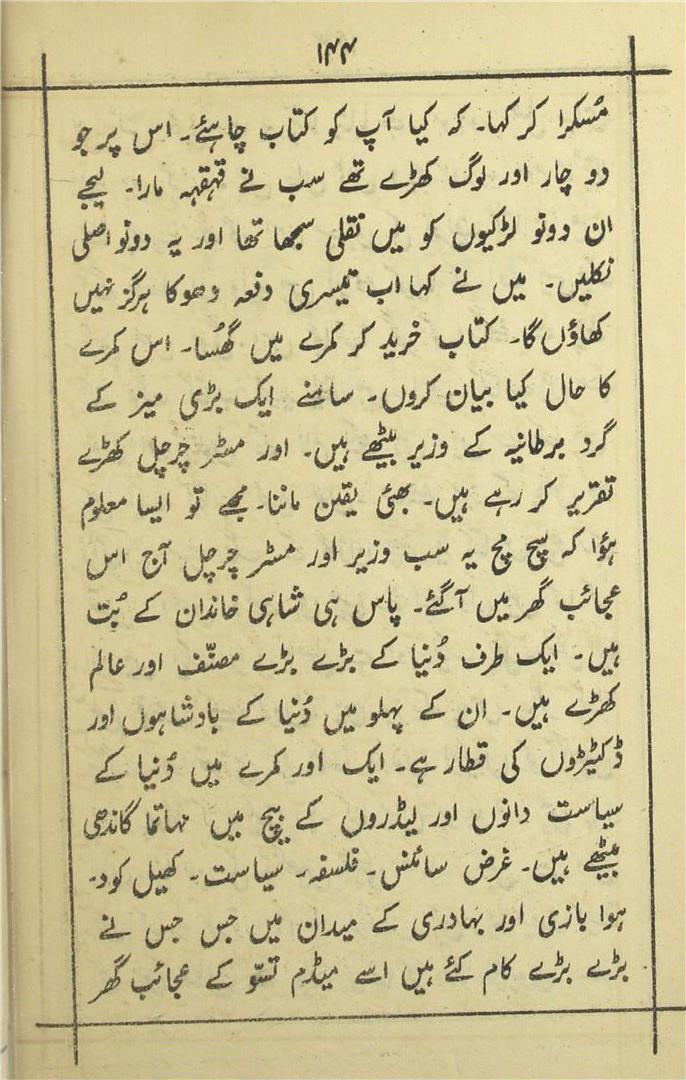 ۱۴۴
مُسکرا کر کہا۔ کہ کیا آپ کو کتاب چاہئے۔ اس پر جو
دو چار اور لوگ کھڑے تھے سب نے قہقہہ مارا۔ لیجے
ان دونو لڑکیوں کو میں نقلی سمجھا تھا اور یہ دونو اصلی
نکلیں۔ میں نے کہا اب تیسری دفعہ دھوکا ہرگز نہیں
کھاؤں گا۔ کتاب خرید کر کمرے میں گھُسا۔ اس کمرے
کا حال کیا بیان کروں۔ سامنے ایک بڑی میز کے
گرد برطانیہ کے وزیر بیٹھے ہیں۔ اور مسٹر چرچل کھڑے
تقریر کر رہے ہیں۔ بھئی یقین ماننا۔ مجھے تو ایسا معلوم
ہؤا کہ سچ مچ یہ سب وزیر اور مسٹر چرچل آج اس
عجائب گھر میں آگئے۔ پاس ہی شاہی خاندان کے بُت
ہیں۔ ایک طرف دُنیا کے بڑے بڑے مصنّف اور عالم
کھڑے ہیں۔ ان کے پہلو میں دُنیا کے بادشاہوں اور
ڈکٹیٹروں کی قطار ہے۔ ایک اور کمرے میں دُنیا کے
سیاست دانوں اور لیڈروں کے بیچ میں مہاتما گاندھی
بیٹھے ہیں۔ غرض سائنس۔ فلسفہ۔ سیاست۔ کھیل کود۔
ہوا بازی اور بہادری کے میدان میں جس جس نے
بڑے بڑے کام کئے ہیں اسے میڈم تسّو کے عجائب گھر